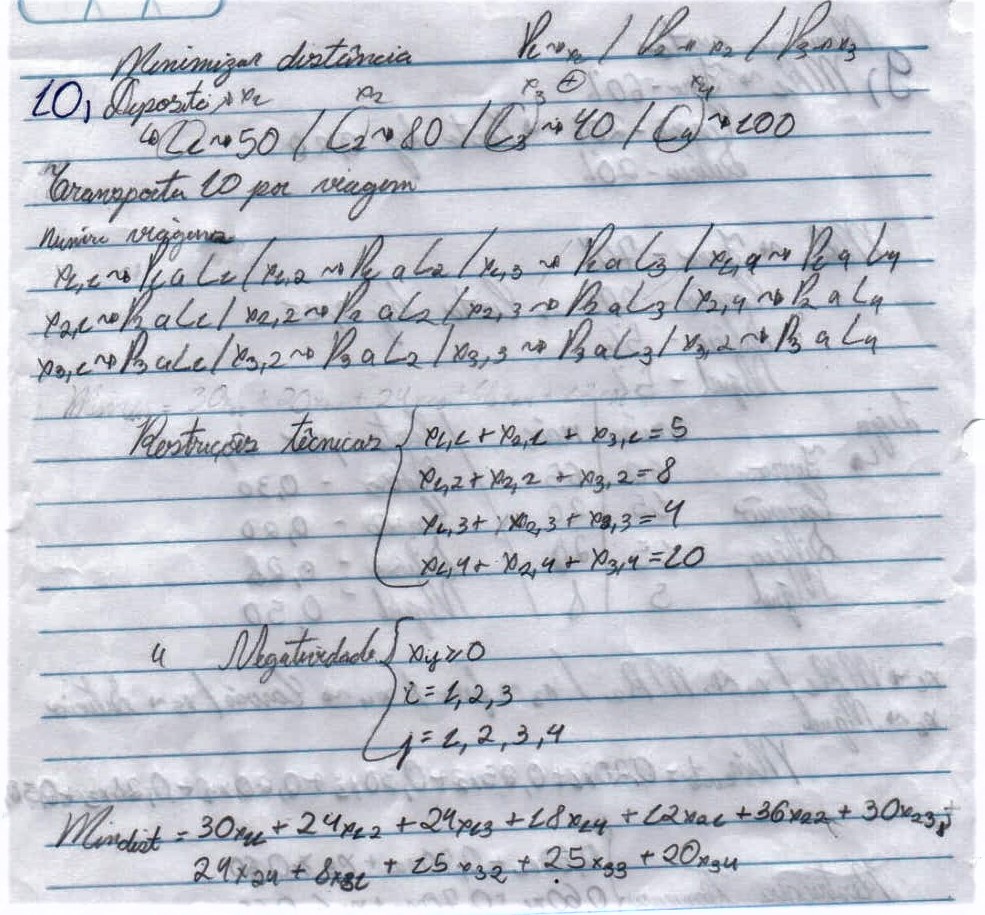 Minimizar distância P1→x1 / P2→x2 / P3→x3
10) Deposito → x1 x2 x3 ⊕ x4
↳ C1→50 / C2→80 / C3→40 / C4→100
Transporta 10 por viagem
Número viagens
x1,1→P1 a L1 / x1,2→P1 a L2 / x1,3→P1 a L3 / x1,4→P1 a L4
x2,1→P2 a L1 / x2,2→P2 a L2 / x2,3→P2 a L3 / x2,4→P2 a L4
x3,1→P3 a L1 / x3,2→P3 a L2 / x3,3→P3 a L3 / x3,2→P3 a L4
Restruções técnicas { x1,1 + x2,1 + x3,1 = 5
x1,2 + x2,2 + x3,2 = 8
x1,3 + x2,3 + x3,3 = 4
x1,4 + x2,4 + x3,4 = 10
" Negatividade { xij ≥ 0
i = 1, 2, 3
j = 1, 2, 3, 4
Min dist = 30x11 + 24x12 + 24x13 + 18x14 + 12x21 + 36x22 + 30x23 +
24x24 + 8x31 + 15x32 + 25x33 + 20x34